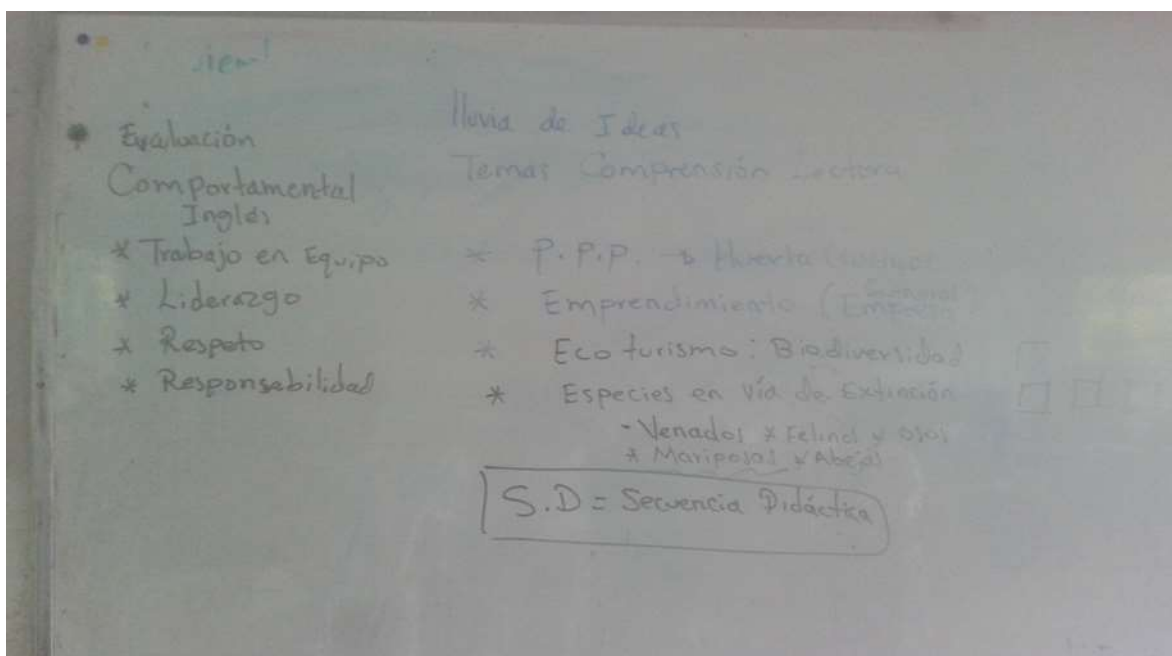 Evaluación
Comportamental
Inglés
* Trabajo en Equipo
* Liderazgo
* Respeto
* Responsabilidad
lluvia de Ideas
Temas Comprensión Lectora
* P.P.P. → Huerta
* Emprendimiento (
* Eco turismo: Biodiversidad
* Especies en Vía de Extinción
- Venados * Felinos y Osos
* Mariposas y Abejas
S.D = Secuencia Didáctica